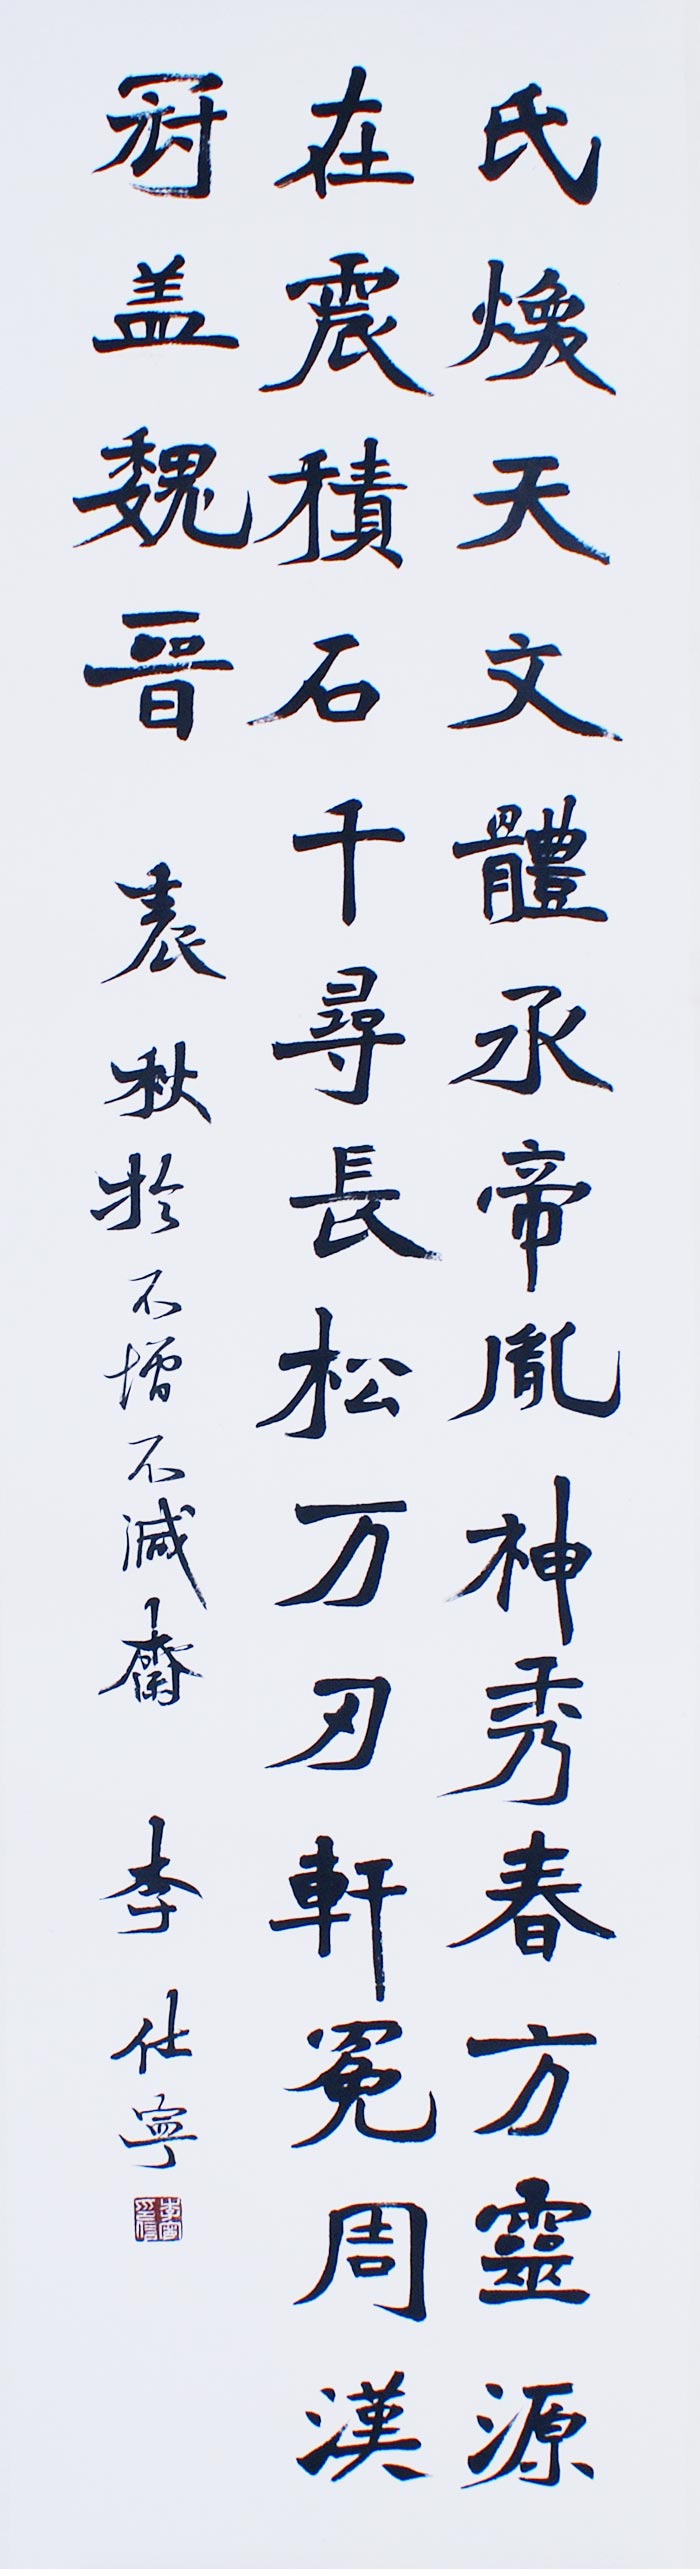 氏煥天文體承帝胤神秀春方靈源
在震積石千尋長松万刃軒冕周漢
冠盖魏晉 秋於不增不減齋 李仕寧